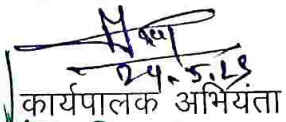 24.5.23
कार्यपालक अभियंता